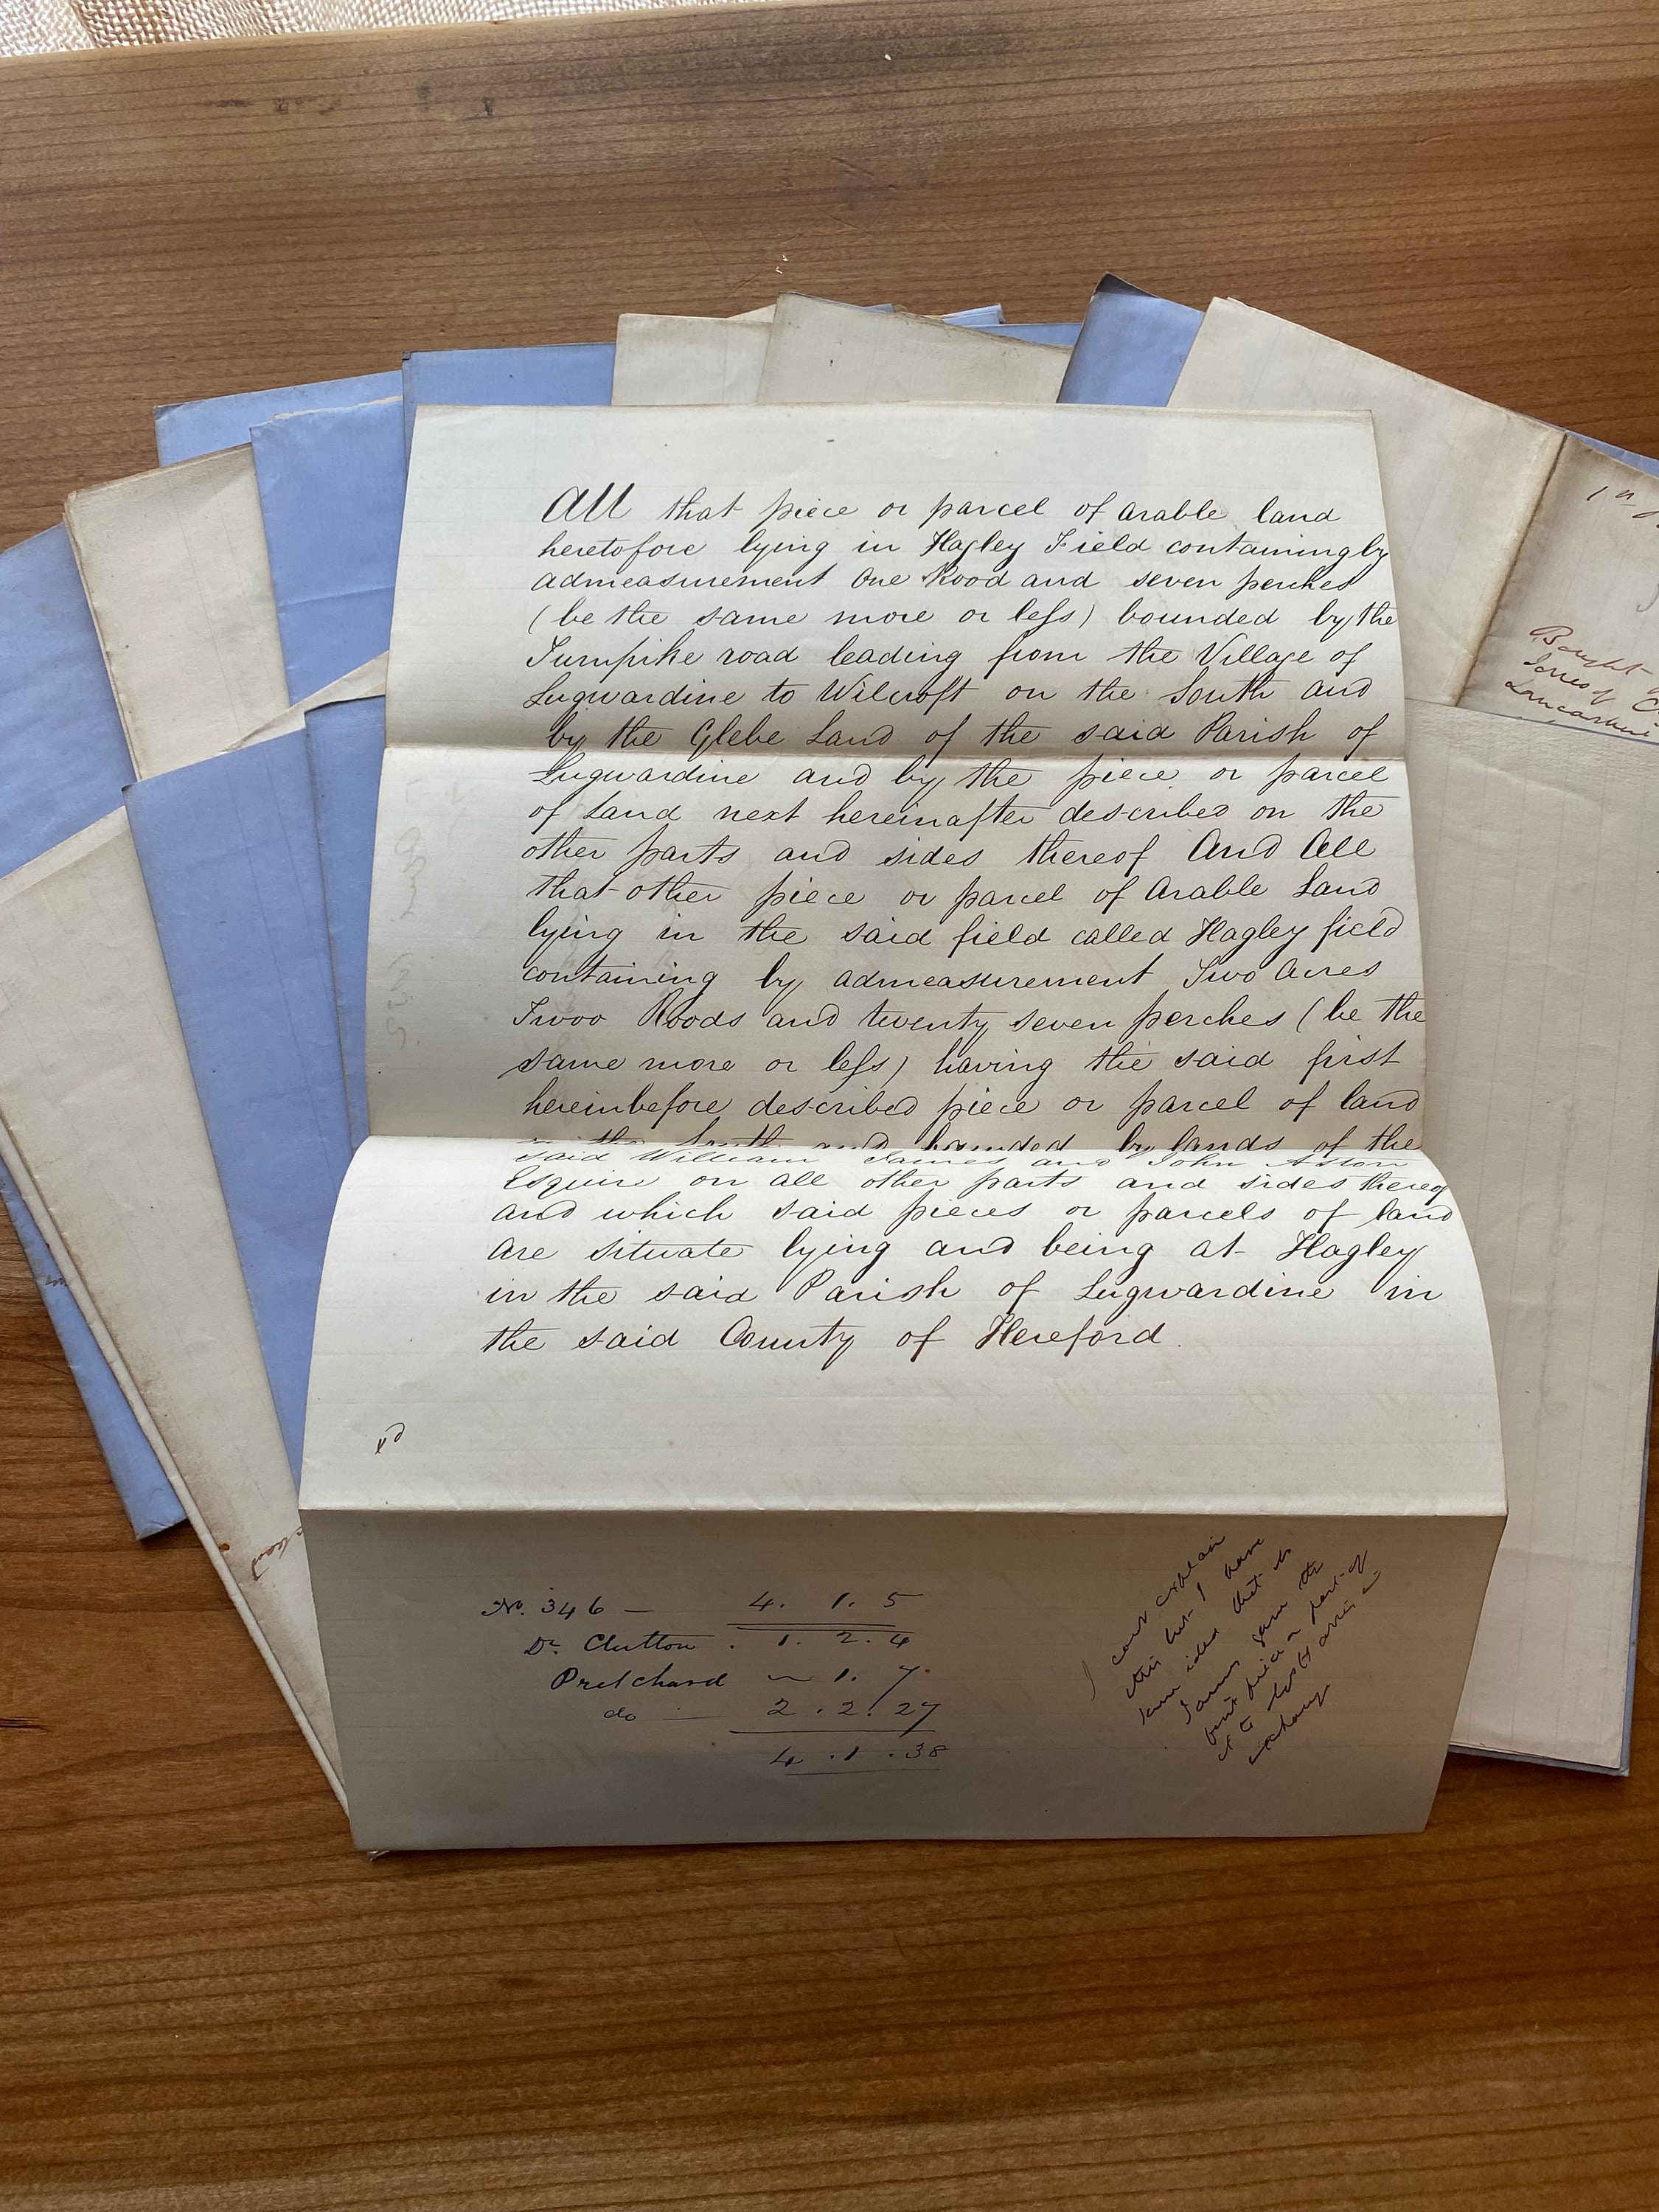 All that piece or parcel of arable land
heretofore lying in Hagley Field containing by
admeasurement One Rood and seven perches
(be the same more or less) bounded by the
Turnpike road leading from the Village of
Lugwardine to Wilcroft on the South and
by the Glebe Land of the said Parish of
Lugwardine and by the piece or parcel
of Land next hereinafter described on the
other parts and sides thereof And All
that other piece or parcel of Arable Land
lying in the said field called Hagley field
containing by admeasurement Two Acres
Twoo Roods and twenty seven perches (be the
same more or less) having the said first
hereinbefore described piece or parcel of land
on the South and bounded by lands of the
said William James and John Aston
Esquire on all other parts and sides thereof
and which said pieces or parcels of land
are situate lying and being at Hagley
in the said Parish of Lugwardine in
the said County of Hereford
No. 346 — 4. 1. 5
Dr. Clutton . 1. 2. 4
Pritchard — 1. 7.
do — 2. 2. 27
4. 1. 38
I cant explain
this but I have
some idea that
James gave the
exchange
Bought
Jones of
Lancashire